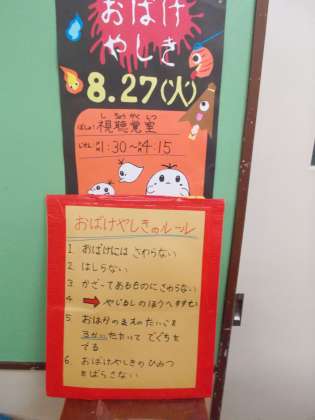 おばけ
やしき
8.27(火)
ばしょ:視聴覚室
しちょうかくしつ
じかん:1:30〜4:15
おばけやしきのルール
1. おばけには さわらない
2. はしらない
3. かざってあるものにさわらない
4. ➡ やじるしのほうへすすむ
5. おはかのまえのたいこを
3かいたたいて でぐちを
でる
6. おばけやしきのひみつ
をばらさない